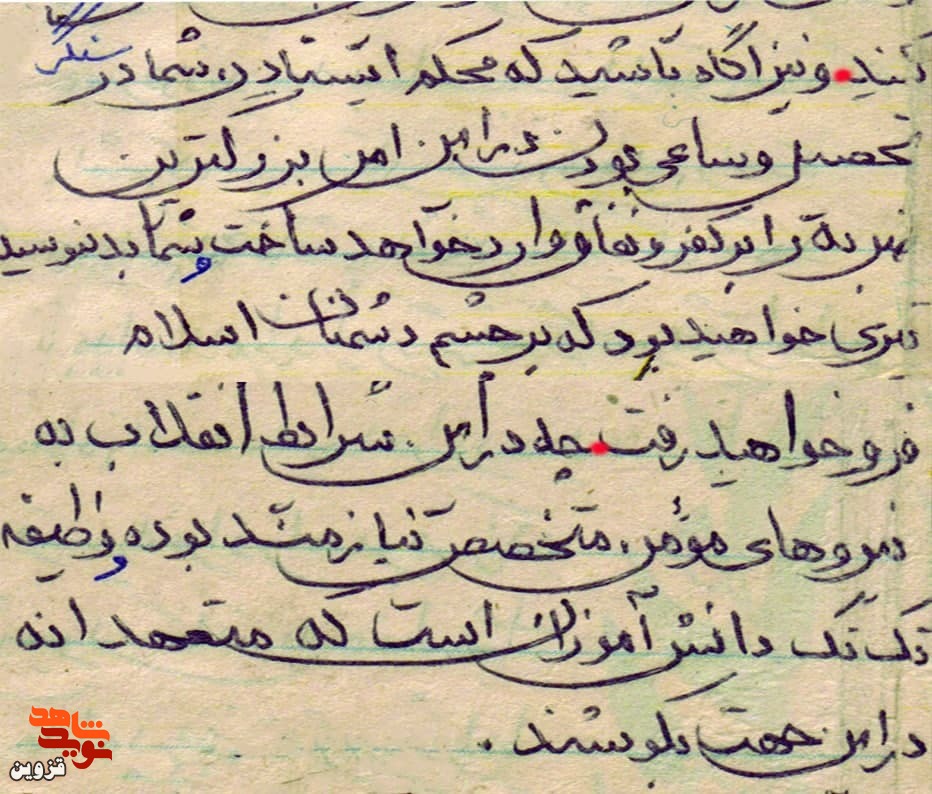 سنگر
کنید. و نیز آگاه باشید که محکم ایستادن شما در
تحصیل و ساعی بودن در این امر بزرگترین
ضربه را بر کفر و نفاق وارد خواهد ساخت و شما بدینوسیله
تیری خواهید بود که بر چشم دشمنان اسلام
فرو خواهید رفت. چه در این شرایط انقلاب به
نیروهای مؤمن، متخصص نیازمند بوده و وظیفه
تک تک دانش آموزان است که متعهدانه
در این جهت بکوشند.
شاهد
نوید
قزوین